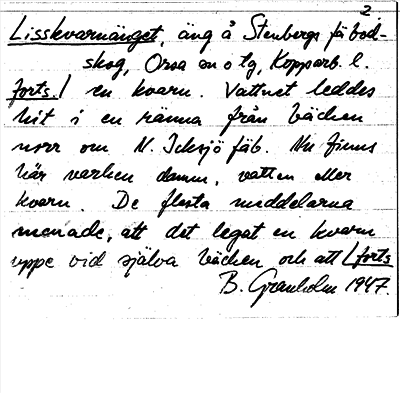 2
Lisskvarnänget, äng å Stenbergs fäbod-
skog, Orsa sn o tg, Kopparb. l.
forts./ en kvarn. Vattnet leddes
hit i en ränna från bäcken
norr om N. Icksjö fäb. Nu finns
här varken damm, vatten eller
kvarn. De flesta meddelarna
menade, att det legat en kvarn
uppe vid själva bäcken och att /forts
B. Granholm 1947.